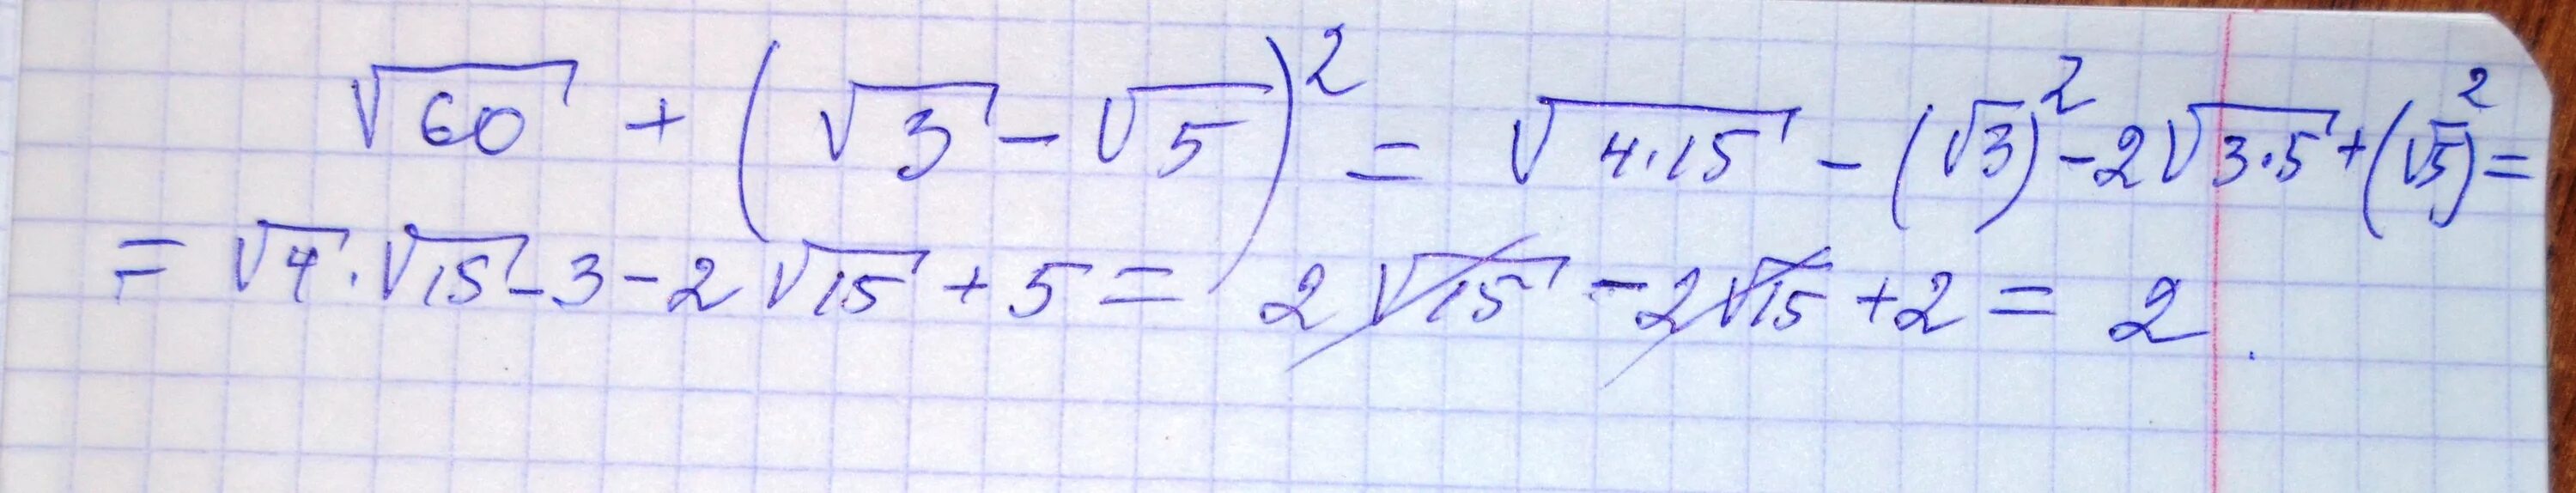 √60 + (√3 - √5)² = √4·15 - (√3)² - 2√3·5 + (√5)² =
= √4 · √15 - 3 - 2√15 + 5 = 2√15 - 2√15 + 2 = 2.